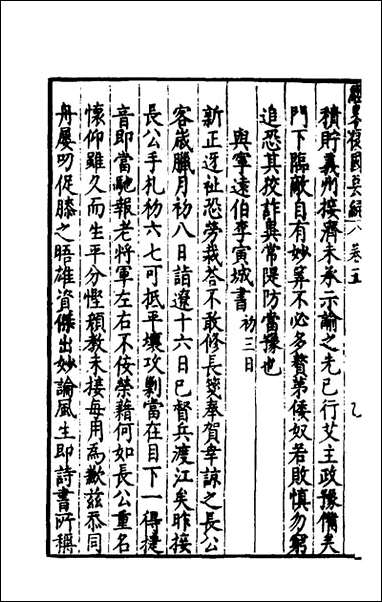 經畧復國要編 卷五
積貯義州接濟未承示諭之先已行艾主政豫備矣
門下臨敵自有妙算不必多贅第倭奴若敗慎勿窮
追恐其狡詐與常隄防當豫也
與寧遠伯李寅城書 初三日
新正迓祉恐勞裁荅不敢修長箋奉賀幸諒之長公
客歲臘月初八日詣遼十六日已督兵渡江矣昨接
長公手札初六七可抵平壤攻剿當在目下一得捷
音即當馳報老將軍左右不佞榮藉何如長公重名
懷仰雖久而生平分慳顏教未接每用為歉茲忝同
舟屢叨促膝之晤雄資傑出妙論風生即詩書所稱